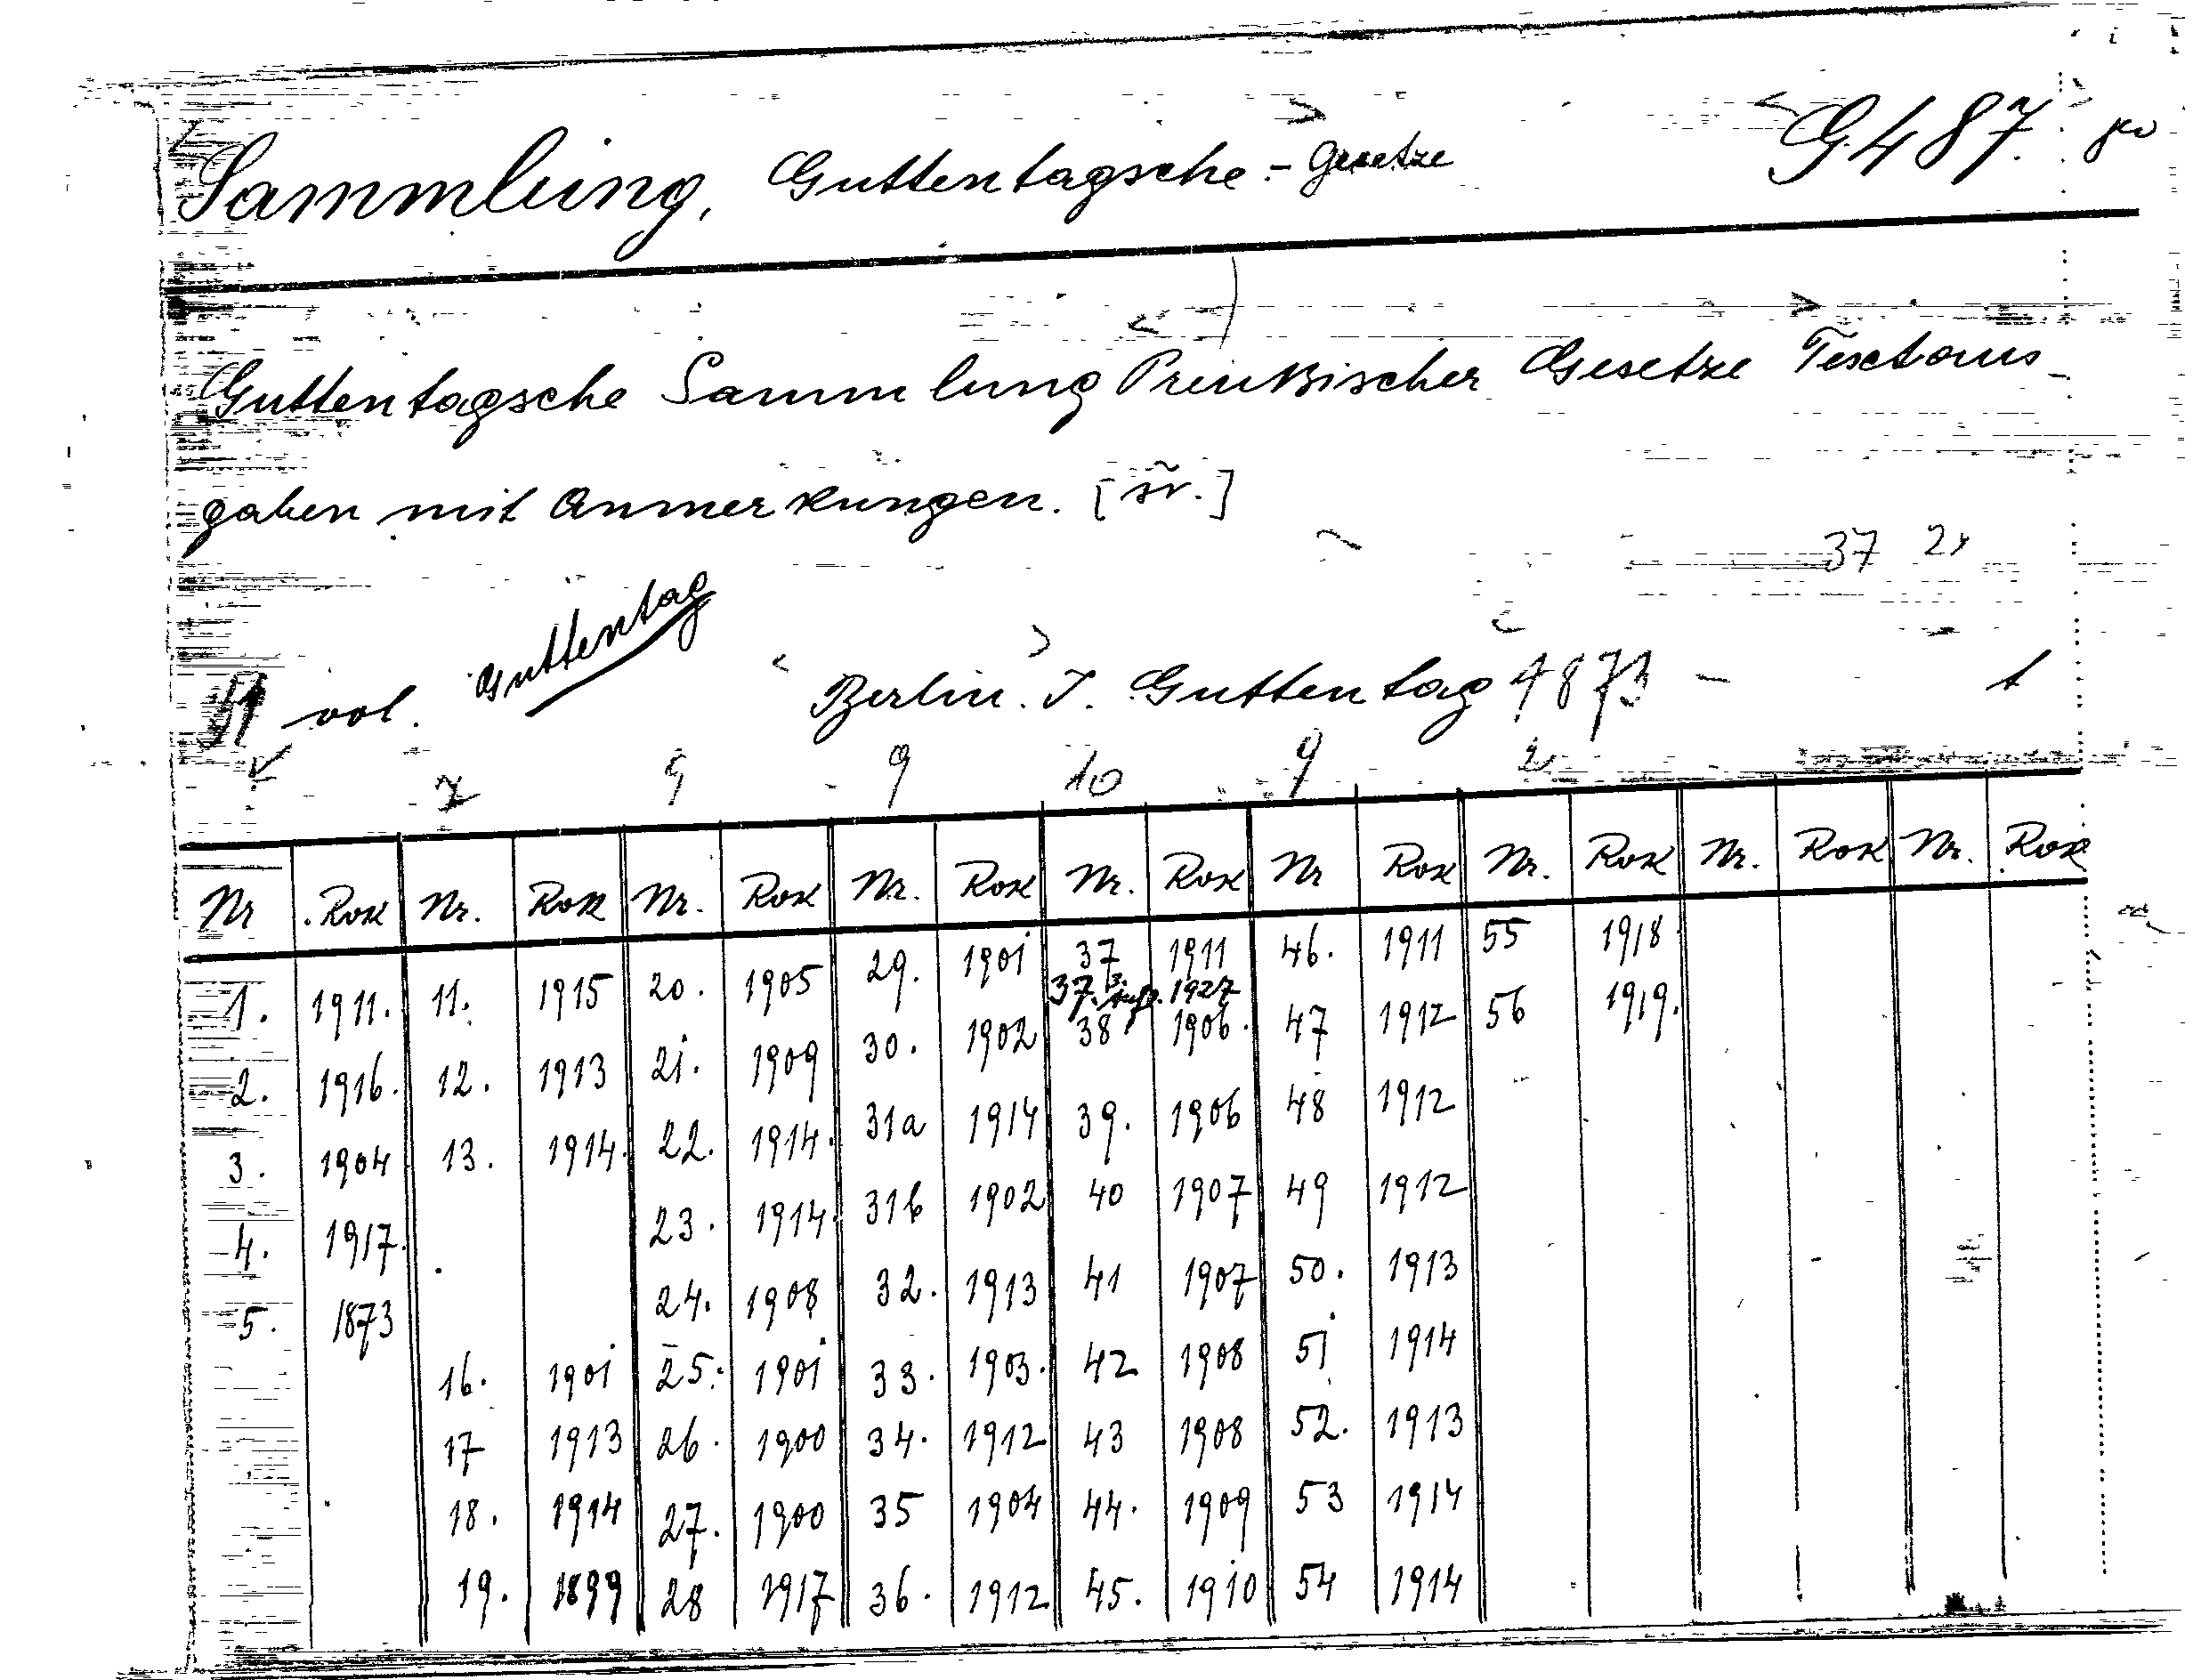 Sammlung, Guttentagsche - Gesetze G.487.
Guttentagsche Sammlung Preußischer Gesetze Textaus-
gaben mit Anmerkungen. [sv.]
37 2x
51 vol. Guttentag Berlin. J. Guttentag 1873 - t
7 9 9 10 9 2
Nr Rok Nr. Rok Nr. Rok Nr. Rok Nr. Rok Nr Rok Nr. Rok Nr. Rok Nr. Rok
1. 1911. 11. 1915 20. 1905 29. 1901 37 1911 46. 1911 55 1918
37. 3. Aufl. 1927
2. 1916. 12. 1913 21. 1909 30. 1902 38 1906. 47 1912 56 1919.
3. 1904 13. 1914. 22. 1914. 31a 1914 39. 1906 48 1912
4. 1917. 23. 1914. 31b 1902 40 1907 49 1912
5. 1873 24. 1908 32. 1913 41 1907 50. 1913
16. 1901 25. 1901 33. 1903. 42 1908 51 1914
17 1913 26. 1900 34. 1912 43 1908 52. 1913
18. 1914 27. 1900 35 1904 44. 1909 53 1914
19. 1899 28 1917 36. 1912 45. 1910 54 1914